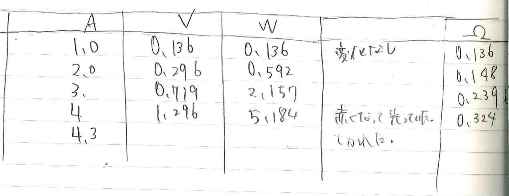 A V W Ω
1.0 0.136 0.136 変化なし 0.136
2.0 0.296 0.592 0.148
3. 0.719 2.157 0.239
4 1.296 5.184 赤くなって 0.324
4.3 しまった.